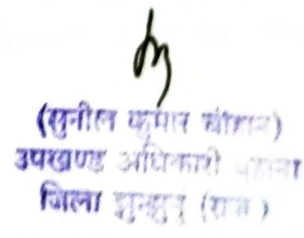 (सुनील कुमार चौहान)
उपखण्ड अधिकारी
जिला झुन्झुनूं (राज०)